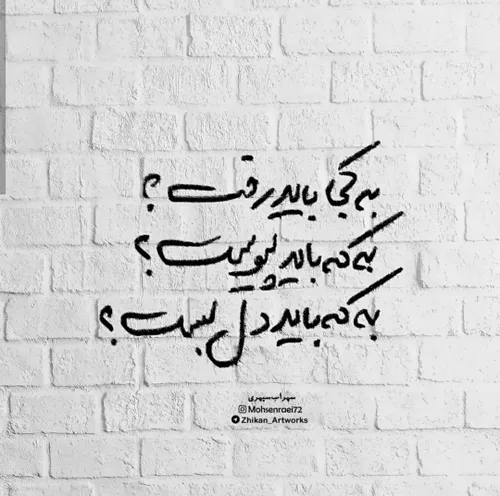 به کجا باید رفت؟
به که باید پیوست؟
به که باید دل بست؟
سهراب سپهری
Mohsenraei72
Zhikan_Artworks